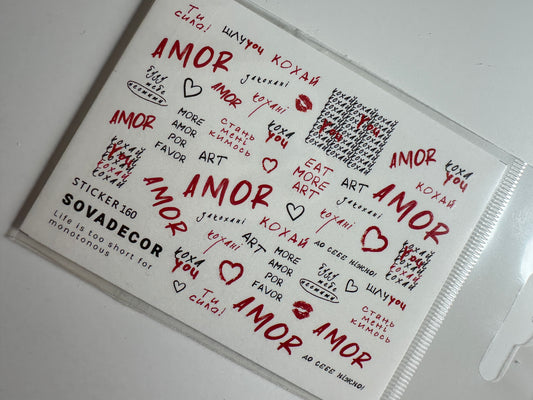 Ти
сила!
ШЛУ you
КОХАЙ
AMOR
закохані
AMOR
кохані
КОХАЙ КОХАЙ
You
AMOR
коха
you
MORE
AMOR
POR
FAVOR
СТАНЬ
МЕНІ
КИМОСЬ
коха
you
AMOR
ART
EAT
MORE
ART
ART
КОХАЙ
AMOR
STICKER 160
SOVADECOR
Life is too short for
monotonous
AMOR
AMOR
закохані
КОХАЙ
кохані
кохані
ART
MORE
AMOR
POR
FAVOR
ДО СЕБЕ НІЖНО!
коха
you
ШЛУ you
СТАНЬ
МЕНІ
КИМОСЬ
Ти
сила!
AMOR
AMOR
ДО СЕБЕ НІЖНО!